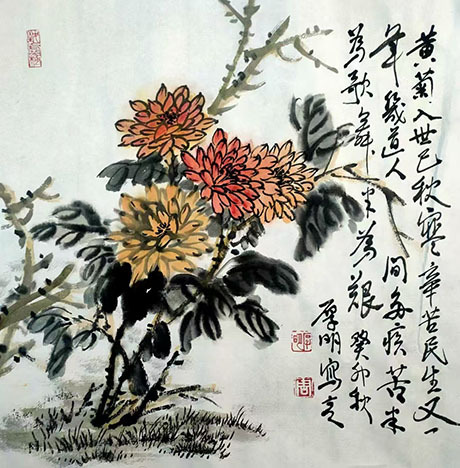 黄菊入世已秋寒辛苦民生又一
年幾道人間多疾苦半
為歌舞半為艱癸卯秋
厚明寫